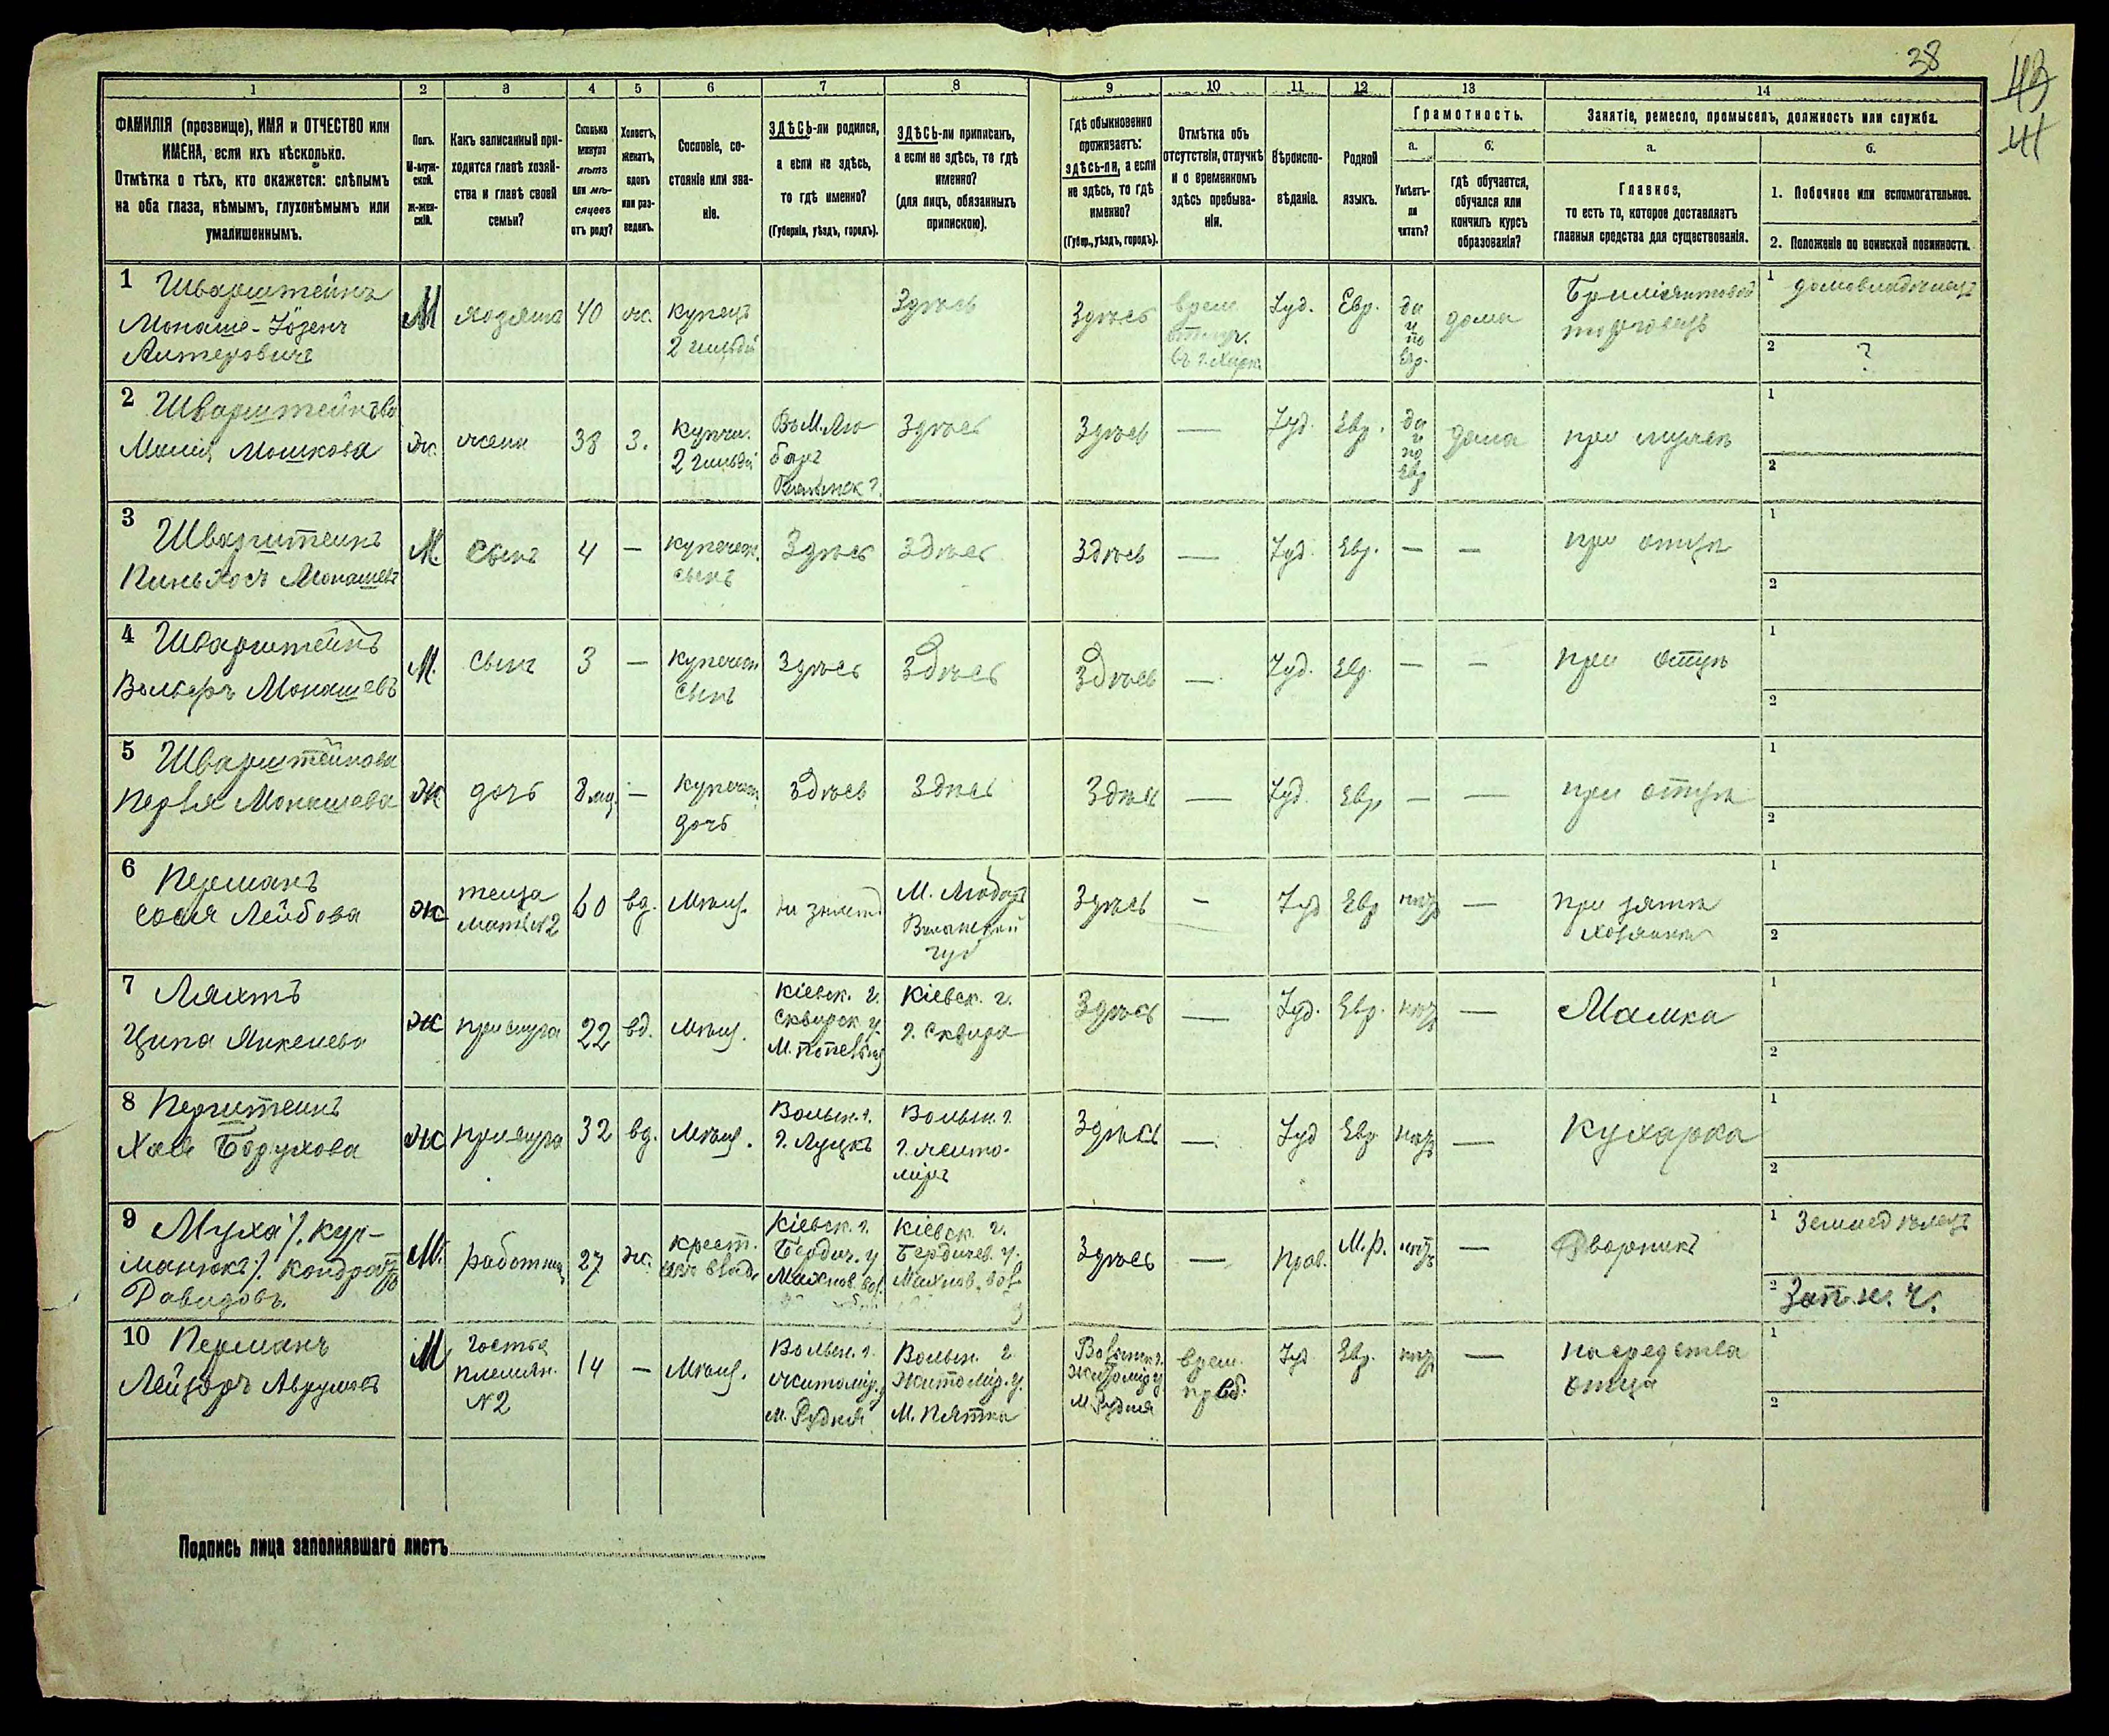 38
43
41
1 2 3 4 5 6 7 8 9 10 11 12 13 14
ФАМИЛІЯ (прозвище), ИМЯ и ОТЧЕСТВО или
ИМЕНА, если ихъ нѣсколько.
Отмѣтка о тѣхъ, кто окажется: слѣпымъ
на оба глаза, нѣмымъ, глухонѣмымъ или
умалишеннымъ.
Полъ.
М-муж-
ской.
Ж-жен-
скій.
Какъ записанный при-
ходится главѣ хозяй-
ства и главѣ своей
семьи?
Сколько
минуло
лѣтъ
или мѣ-
сяцевъ
отъ роду?
Холостъ,
женатъ,
вдовъ
или раз-
веденъ.
Сословіе, со-
стояніе или зва-
ніе.
ЗДѢСЬ-ли родился,
а если не здѣсь,
то гдѣ именно?
(Губернія, уѣздъ, городъ).
ЗДѢСЬ-ли приписанъ,
а если не здѣсь, то гдѣ
именно?
(для лицъ, обязанныхъ
припискою).
Гдѣ обыкновенно
проживаетъ:
здѣсь-ли, а если
не здѣсь, то гдѣ
именно?
(Губер., уѣздъ, городъ).
Отмѣтка объ
отсутствіи, отлучкѣ
и о временномъ
здѣсь пребыва-
ніи.
Вѣроиспо-
вѣданіе.
Родной
языкъ.
Грамотность.
а.
Умѣетъ-
ли
читать?
б.
гдѣ обучается,
обучался или
кончилъ курсъ
образованія?
Занятіе, ремесло, промыселъ, должность или служба.
а.
Главное,
то есть то, которое доставляетъ
главныя средства для существованія.
б.
1. Побочное или вспомогательное.
2. Положеніе по воинской повинности.
1 Шварштейнъ
Монаше-Іозенъ
Антеровичъ
М
хозяинъ
40
ж.
купецъ
2 гильдіи
Здѣсь
Здѣсь
врем.
отлуч.
въ г. Харк.
Іуд.
Евр.
да
и
по
Евр.
дома
торговецъ
1 домовладѣлецъ
2 ?
2 Шварштейнъва
Мошкова
ж.
жена
38
З.
купчи.
2 гильдіи
Въ М. Лю-
барѣ
Волынск г.
Здѣсь
Здѣсь
—
Іуд.
Евр.
да
и
по
Евр
дома
при мужѣ
1
2
3 Шварштейнъ
Пиньхосъ Монашевъ
М.
сынъ
4
—
купеческ.
сынъ
Здѣсь
Здѣсь
Здѣсь
—
Іуд.
Евр.
—
—
при отцѣ
1
2
4 Шварштейнъ
Вольфъ Монашевъ
М.
сынъ
3
—
купеческ
сынъ
Здѣсь
Здѣсь
Здѣсь
—
Іуд.
Евр.
—
—
при отцѣ
1
2
5 Шварштейнова
Перля Монашева
Ж
дочь
8 мц.
—
купеческ
дочь
Здѣсь
Здѣсь
Здѣсь
—
Іуд.
Евр
—
—
при отцѣ
1
2
6 Перманъ
Сося Лейбова
Ж
теща
мать №2
60
вд.
Мѣщ.
не знаетъ
М. Любаръ
Волынской
губ
Здѣсь
—
Іуд
Евр
нѣтъ
—
при зятѣ
хозяинѣ
1
2
7 Ляхтъ
Ципа Янкелева
Ж
прислуга
22
вд.
Мѣщ.
Кіевск. г.
Сквирск у.
Кіевск. г.
г. Сквира
Здѣсь
—
Іуд.
Евр.
нѣтъ
—
Мамка
1
2
8 Перштейнъ
Хая Борухова
Ж
прислуга
32
вд.
Мѣщ.
Волын. г.
г. Луцкъ
Волын. г.
г. Жито-
міръ
Здѣсь
—
Іуд
Евр
нѣтъ
—
Кухарка
1
2
9 Муха /. Кур-
манюкъ /. Кондратъ
Давидовъ.
М.
работникъ
27
ж.
крест.
Кіевск. г.
Бердич. у
Махнов. вол.
Кіевск. г.
Бердичев. у.
Махнов. вол.
Здѣсь
—
Прав.
М.р.
нѣтъ
—
Дворникъ
1 Земледѣлецъ
2 Зап. н. ч.
10 Перманъ
Лейзоръ Аврумовъ
М
гостья
племян.
№2
14
—
Мѣщ.
Волын. г.
Житомір. у
м. Рудня
Волын. г
Житомір. у.
М. Пятка
Волын. г.
Житомір у
м. Рудня
врем.
преб.
Іуд
Евр.
нѣтъ
—
на средства
отца
1
2
Подпись лица заполнявшаго листъ